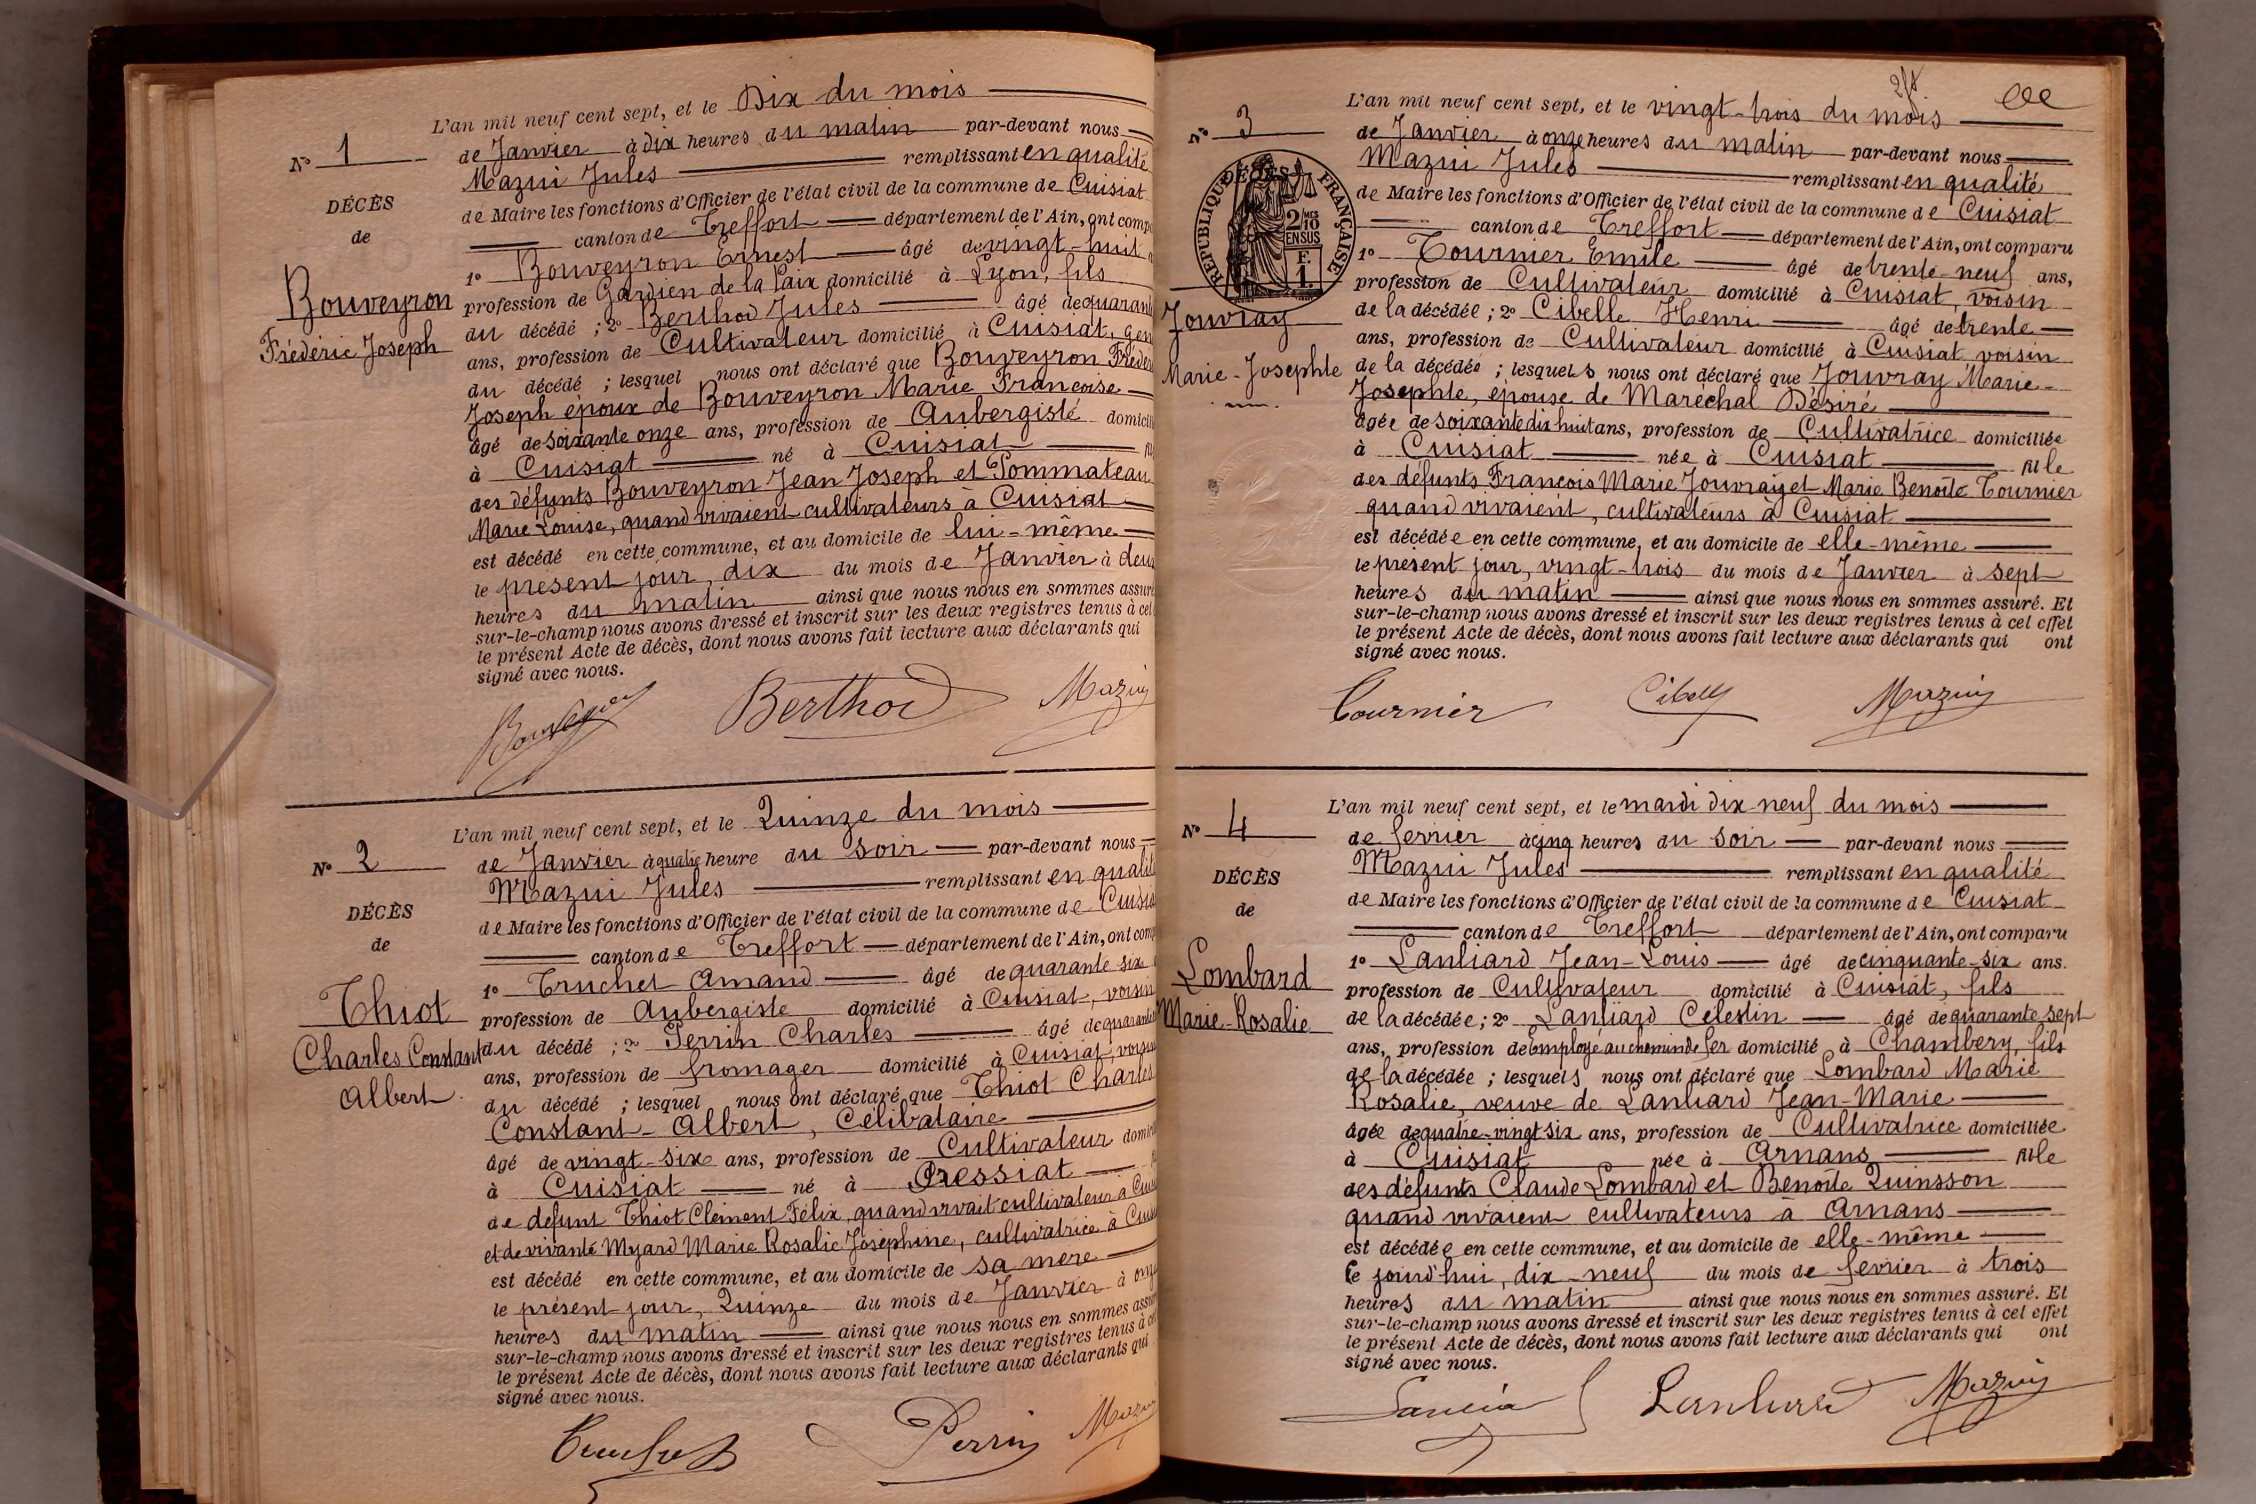 L'an mil neuf cent sept, et le Dix du mois
N° 1
de Janvier à dix heures du matin par-devant nous
Mazui Jules remplissant en qualité
DÉCÈS
de Maire les fonctions d'Officier de l'état civil de la commune de Cuisiat
de
canton de Treffort département de l'Ain, ont comp
1° Bouveyron Ernest âgé de vingt-huit
Bouveyron
profession de Gardien de la Paix domicilié à Lyon, fils
Frédéric Joseph
du décédé ; 2° Berthod Jules âgé de quarante
ans, profession de Cultivateur domicilié à Cuisiat, gen
du décédé ; lesquel nous ont déclaré que Bouveyron Fréder
Joseph époux de Bouveyron Marie Françoise
âgé de soixante onze ans, profession de Aubergiste domicili
à Cuisiat né à Cuisiat
des défunts Bouveyron Jean Joseph et Pommateau
Marie Louise, quand vivaient cultivateurs à Cuisiat
est décédé en cette commune, et au domicile de lui-même
le présent jour, dix du mois de Janvier à deux
heures du matin ainsi que nous nous en sommes assuré
sur-le-champ nous avons dressé et inscrit sur les deux registres tenus à cet
le présent Acte de décès, dont nous avons fait lecture aux déclarants qui
signé avec nous.
Berthod Mazui
L'an mil neuf cent sept, et le Quinze du mois
N° 2
de Janvier à quatre heure du soir par-devant nous
Mazui Jules remplissant en qualité
DÉCÈS
de Maire les fonctions d'Officier de l'état civil de la commune de Cuisia
de
canton de Treffort département de l'Ain, ont comp
1° Truchet Amand âgé de quarante six
Thiot
profession de Aubergiste domicilié à Cuisiat, voisin
Charles Constant
du décédé ; 2° Perrin Charles âgé de quarante
Albert
ans, profession de fromager domicilié à Cuisiat, voisin
du décédé ; lesquel nous ont déclaré que Thiot Charles
Constant-Albert, Célibataire
âgé de vingt-six ans, profession de Cultivateur domici
à Cuisiat né à Pressiat
de défunt Thiot Clément Félix, quand vivait cultivateur à Cuis
et de vivante Myard Marie Rosalie Joséphine, cultivatrice à Cuis
est décédé en cette commune, et au domicile de sa mère
le présent jour, Quinze du mois de Janvier à onze
heures du matin ainsi que nous nous en sommes assur
sur-le-champ nous avons dressé et inscrit sur les deux registres tenus à ce
le présent Acte de décès, dont nous avons fait lecture aux déclarants qui
signé avec nous.
Perrin Mazui
L'an mil neuf cent sept, et le vingt-trois du mois
N° 3
de Janvier à onze heures du matin par-devant nous
Mazui Jules remplissant en qualité
DÉCÈS
RÉPUBLIQUE FRANÇAISE
2/10 MES
EN SUS
F.
1.
de Maire les fonctions d'Officier de l'état civil de la commune de Cuisiat
canton de Treffort département de l'Ain, ont comparu
1° Tournier Emile âgé de trente-neuf ans,
profession de Cultivateur domicilié à Cuisiat, voisin
Jouvray
de la décédée ; 2° Cibelle Henri âgé de trente
ans, profession de Cultivateur domicilié à Cuisiat voisin
Marie-Josephte
de la décédée ; lesquels nous ont déclaré que Jouvray Marie-
Josephte, épouse de Maréchal Désiré
âgée de soixante dix huit ans, profession de Cultivatrice domiciliée
à Cuisiat née à Cuisiat fille
des défunts François Marie Jouvray et Marie Benoîte Tournier
quand vivaient, cultivateurs à Cuisiat
est décédée en cette commune, et au domicile de elle-même
le présent jour, vingt-trois du mois de Janvier à sept
heures du matin ainsi que nous nous en sommes assuré. Et
sur-le-champ nous avons dressé et inscrit sur les deux registres tenus à cet effet
le présent Acte de décès, dont nous avons fait lecture aux déclarants qui ont
signé avec nous.
Tournier Cibelle Mazui
L'an mil neuf cent sept, et le mardi dix-neuf du mois
N° 4
de février à cinq heures du soir par-devant nous
Mazui Jules remplissant en qualité
DÉCÈS
de Maire les fonctions d'Officier de l'état civil de la commune de Cuisiat
de
canton de Treffort département de l'Ain, ont comparu
1° Lanliard Jean-Louis âgé de cinquante-six ans.
Lombard
profession de Cultivateur domicilié à Cuisiat, fils
Marie-Rosalie
de la décédée ; 2° Lanliard Célestin âgé de quarante sept
ans, profession de Employé au chemin de fer domicilié à Chambéry, fils
de la décédée ; lesquels nous ont déclaré que Lombard Marie
Rosalie, veuve de Lanliard Jean-Marie
âgée de quatre-vingt six ans, profession de Cultivatrice domiciliée
à Cuisiat née à Arnans fille
des défunts Claude Lombard et Benoîte Quinsson
quand vivaient cultivateurs à Arnans
est décédée en cette commune, et au domicile de elle-même
le jourd'hui, dix-neuf du mois de février à trois
heures du matin ainsi que nous nous en sommes assuré. Et
sur-le-champ nous avons dressé et inscrit sur les deux registres tenus à cet effet
le présent Acte de décès, dont nous avons fait lecture aux déclarants qui ont
signé avec nous.
Mazui